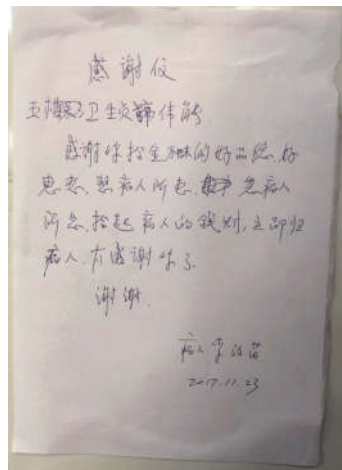 感谢信
卫生员韩伟能
感谢你拾金不昧的好品德，好
思想，想病人所想，急病人
所急，拾起病人的钱财，立即归
病人，太感谢你了
谢谢
病人 李
2017.11.23